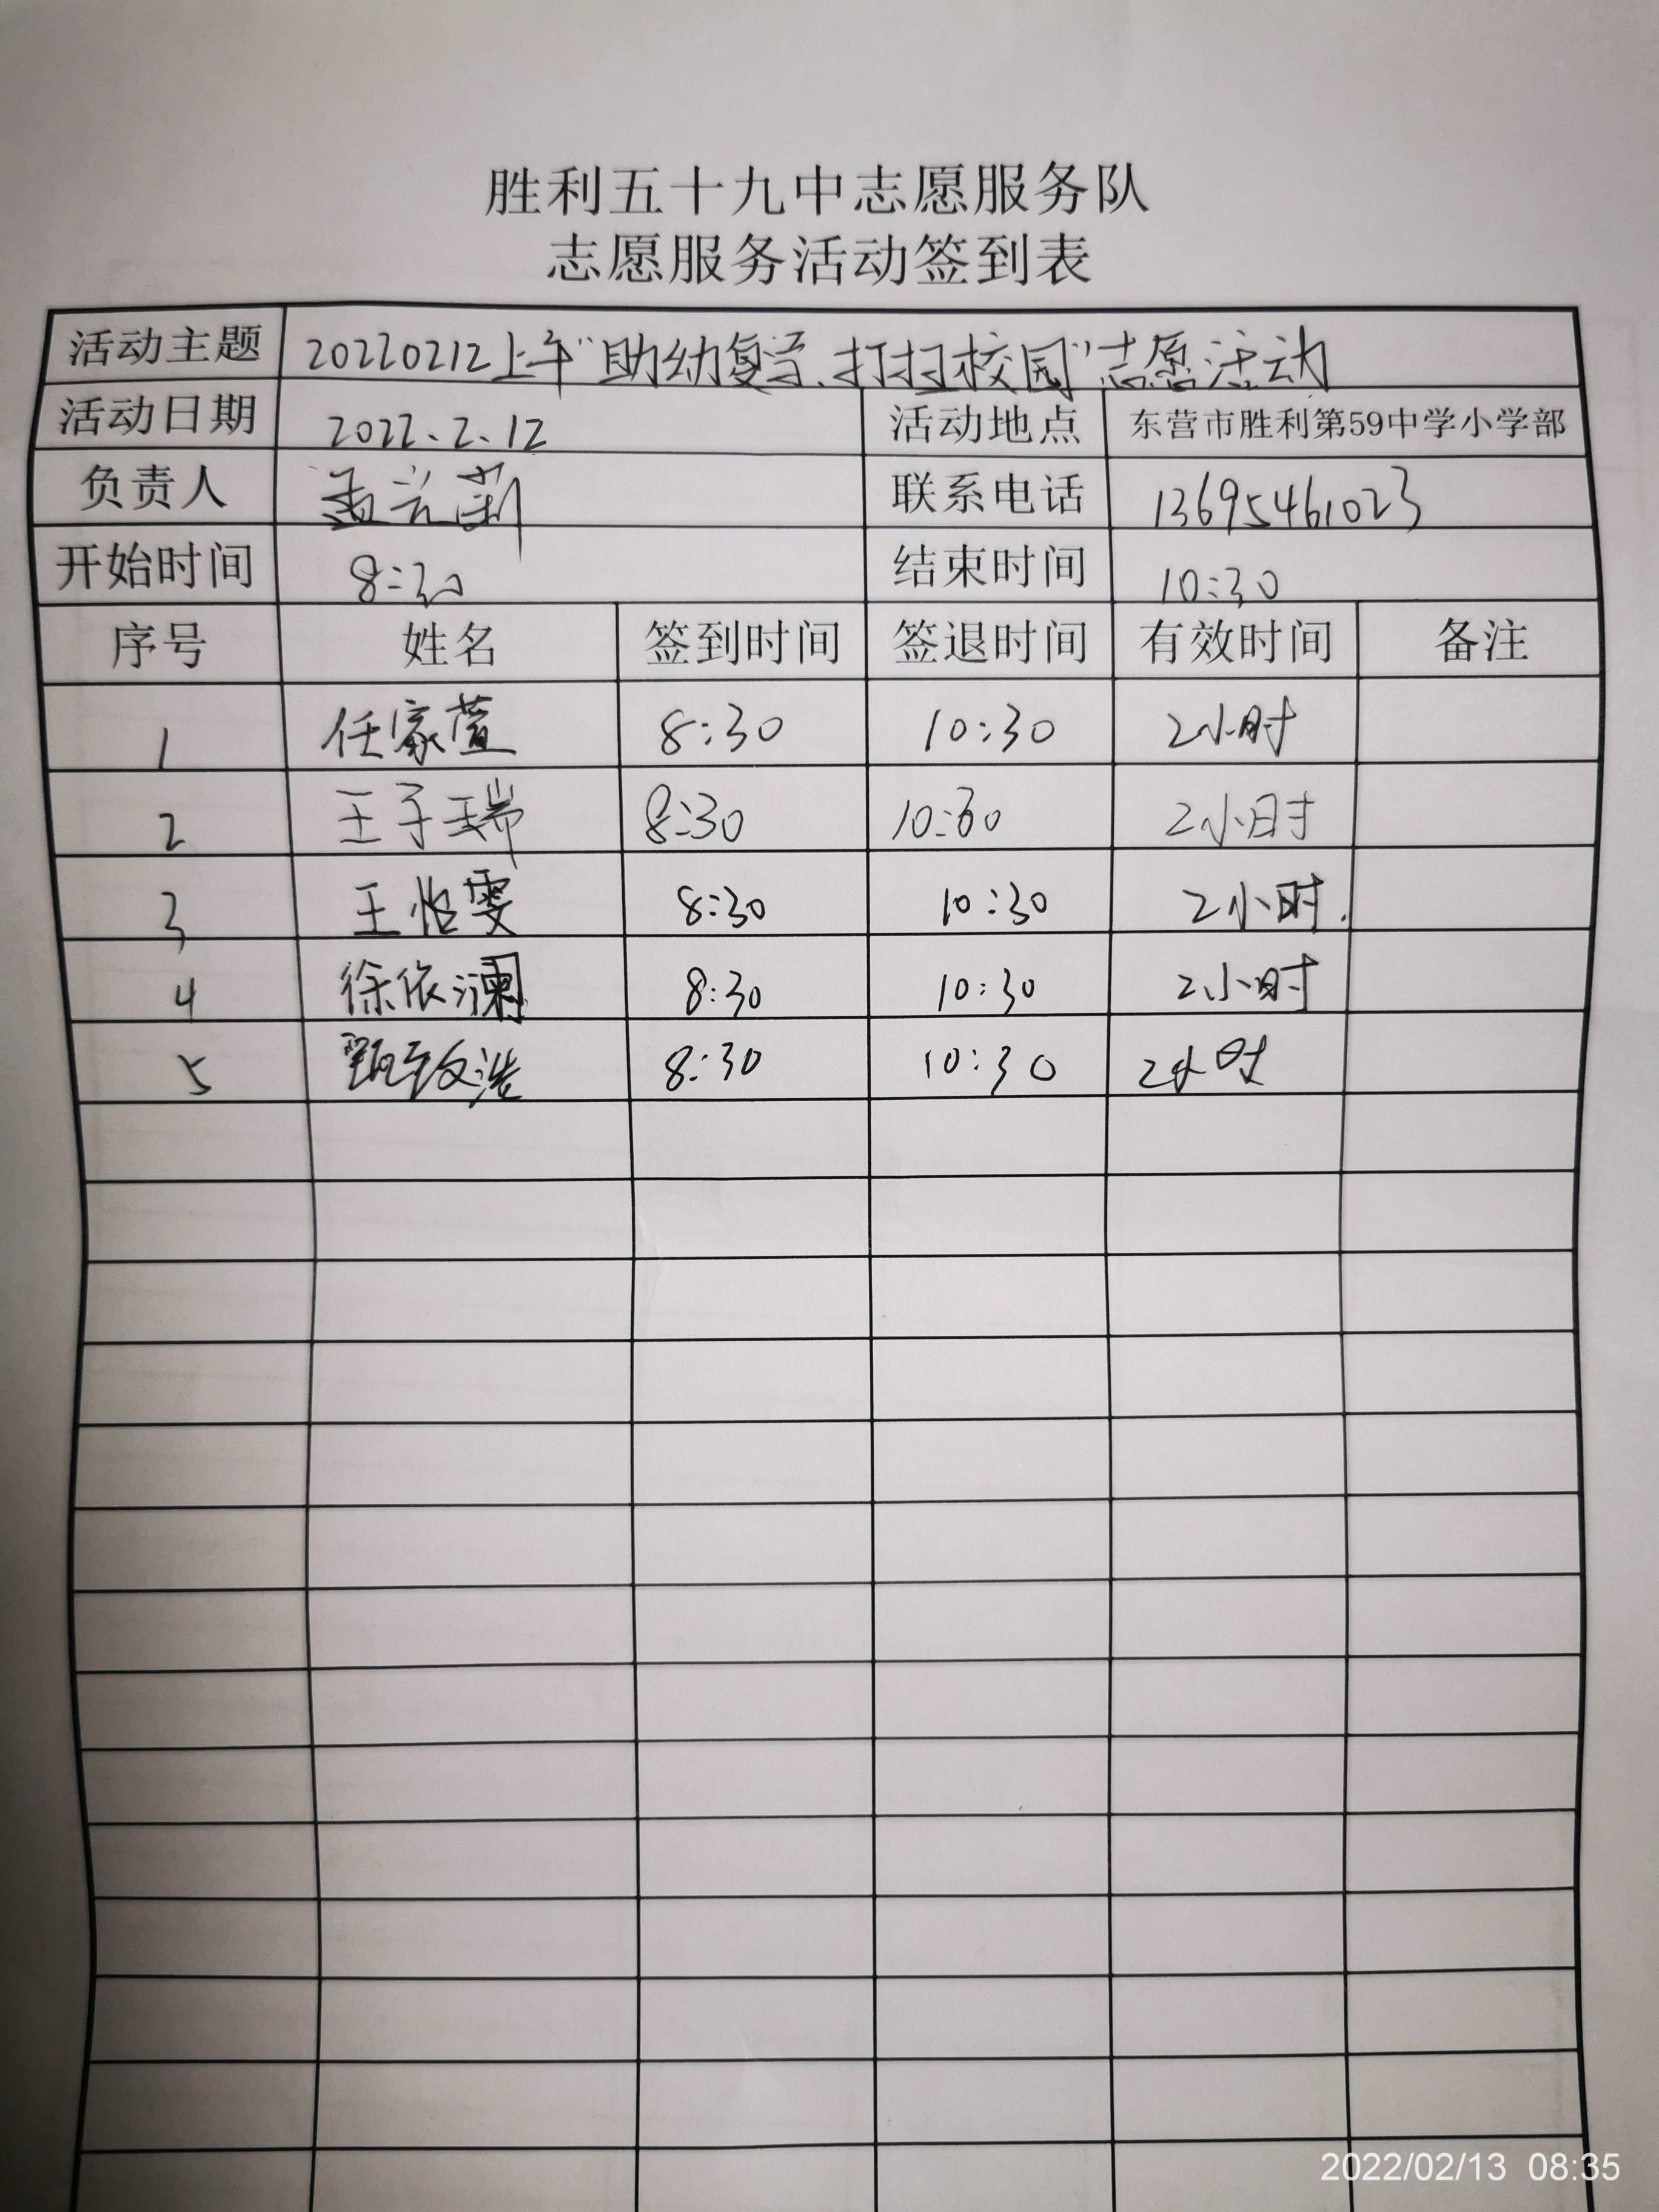 胜利五十九中志愿服务队
志愿服务活动签到表
活动主题 20220212上午"助幼复学、打扫校园"志愿活动
活动日期 2022.2.12 活动地点 东营市胜利第59中学小学部
负责人 孟兰莉 联系电话 13695461023
开始时间 8:30 结束时间 10:30
序号 姓名 签到时间 签退时间 有效时间 备注
1 任家萱 8:30 10:30 2小时
2 王子瑞 8:30 10:30 2小时
3 王怡雯 8:30 10:30 2小时.
4 徐依澜 8:30 10:30 2小时
5 甄致浩 8:30 10:30 2小时
2022/02/13 08:35